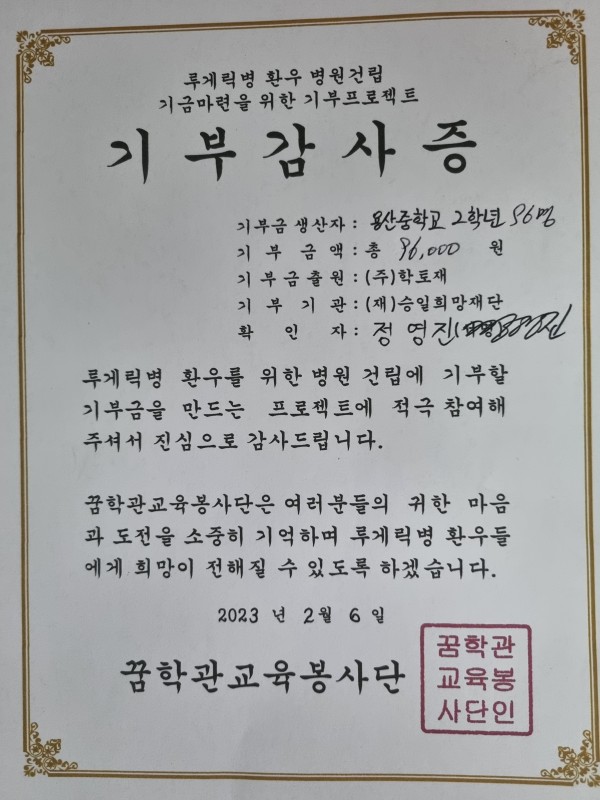 루게릭병 환우 병원건립
기금마련을 위한 기부프로젝트
기부감사증
기부금 생산자 : 용산중학교 2학년 96명
기부금액 : 총 96,000 원
기부금출원 : (주)학토재
기부기관 : (재)승일희망재단
확인자 : 정영진
루게릭병 환우를 위한 병원 건립에 기부할
기부금을 만드는 프로젝트에 적극 참여해
주셔서 진심으로 감사드립니다.
꿈학관교육봉사단은 여러분들의 귀한 마음
과 도전을 소중히 기억하며 루게릭병 환우들
에게 희망이 전해질 수 있도록 하겠습니다.
2023 년 2월 6 일
꿈학관교육봉사단
꿈학관
교육봉
사단인